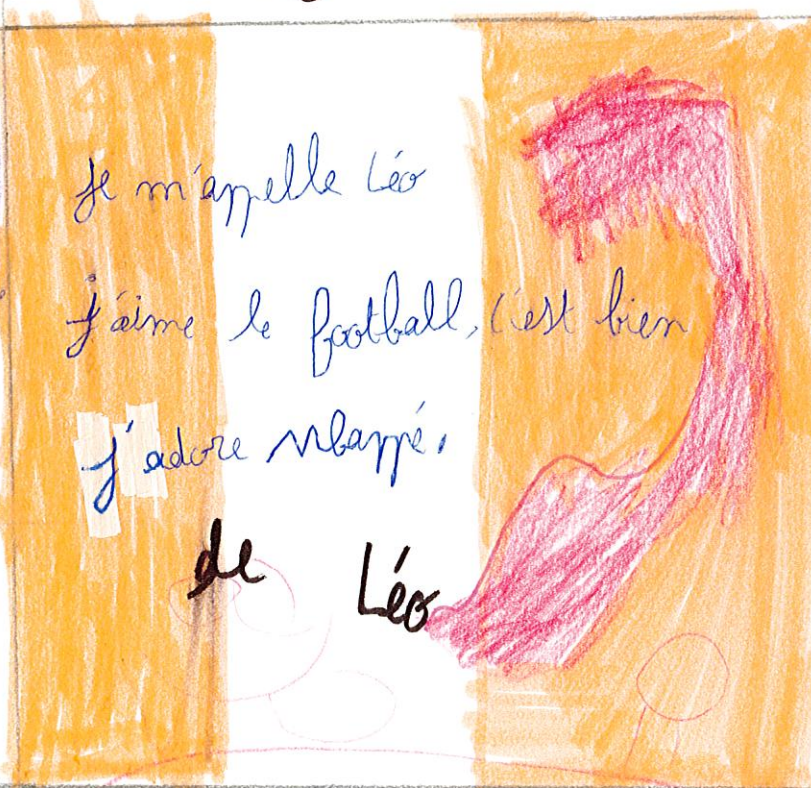 Je m'appelle Léo
j'aime le football, c'est bien
j'adore Mbappé.
de Léo